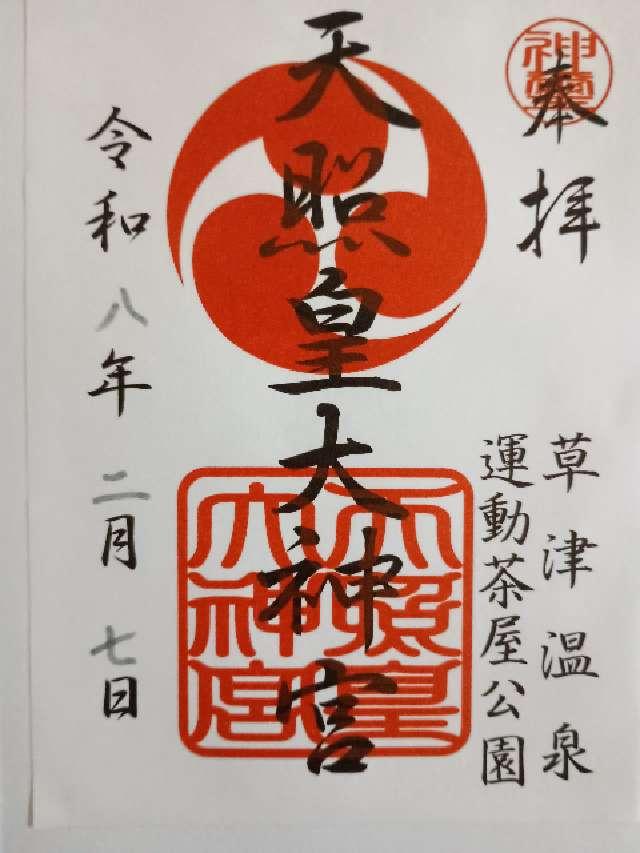 奉拝
草津温泉
運動茶屋公園
天照皇大神宮
天照皇
大神宮
令和八年二月七日